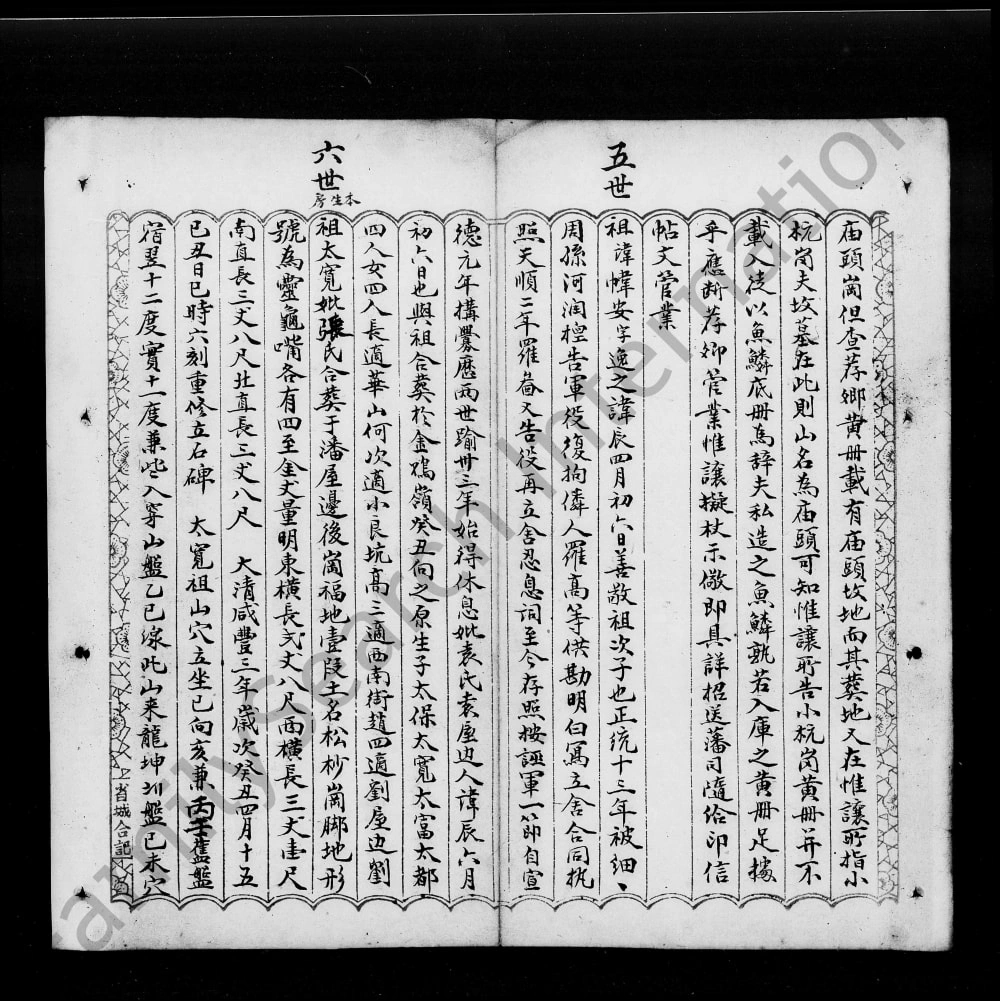 五世
庙頭崗但查荐鄉黄册載有庙頭坟地而其葬地又在惟讓所指小
杭崗夫坟墓在此則山名為庙頭可知惟讓所告小杭崗黄册并不
載入徒以魚鱗底册為辞夫私造之魚鱗孰若入庫之黄册足據
乎應断荐鄉管業惟讓擬杖示儆即具詳招送藩司隨给印信
帖文管業
祖諱幃安字逸之諱辰四月初六日善敬祖次子也正统十三年被细、
周孫河润檀告軍役復拘隣人羅高等供勘明白寫立舍合同执
照天順二年羅昏又告役再立舍忍息詞至今存照按誣軍一節自宣
德元年搆釁歷两世踰卅三年始得休息妣袁氏袁屋边人諱辰六月
初六日也與祖合葬於金鷄嶺癸丑向之原生子太保太寬太富太都
四人女四人長適華山何次適小良坑高三適西南街趙四適劉屋边劉
六世本生房
祖太寬妣張氏合葬于潘屋邊後崗福地壹段土名松杪崗脚地形
號為靈龜嘴各有四至金丈量明東横長弍丈八尺西横長三丈壹尺
南直長三丈八尺北直長三丈八尺 大清咸豐三年歲次癸丑四月十五
己丑日巳時六刻重修立石碑 太寬祖山穴立坐巳向亥兼丙壬舊盤
宿翌十二度實十一度兼些入穿山盤乙巳缐此山来龍坤 盤巳未穴
省城合記
FamilySearch International